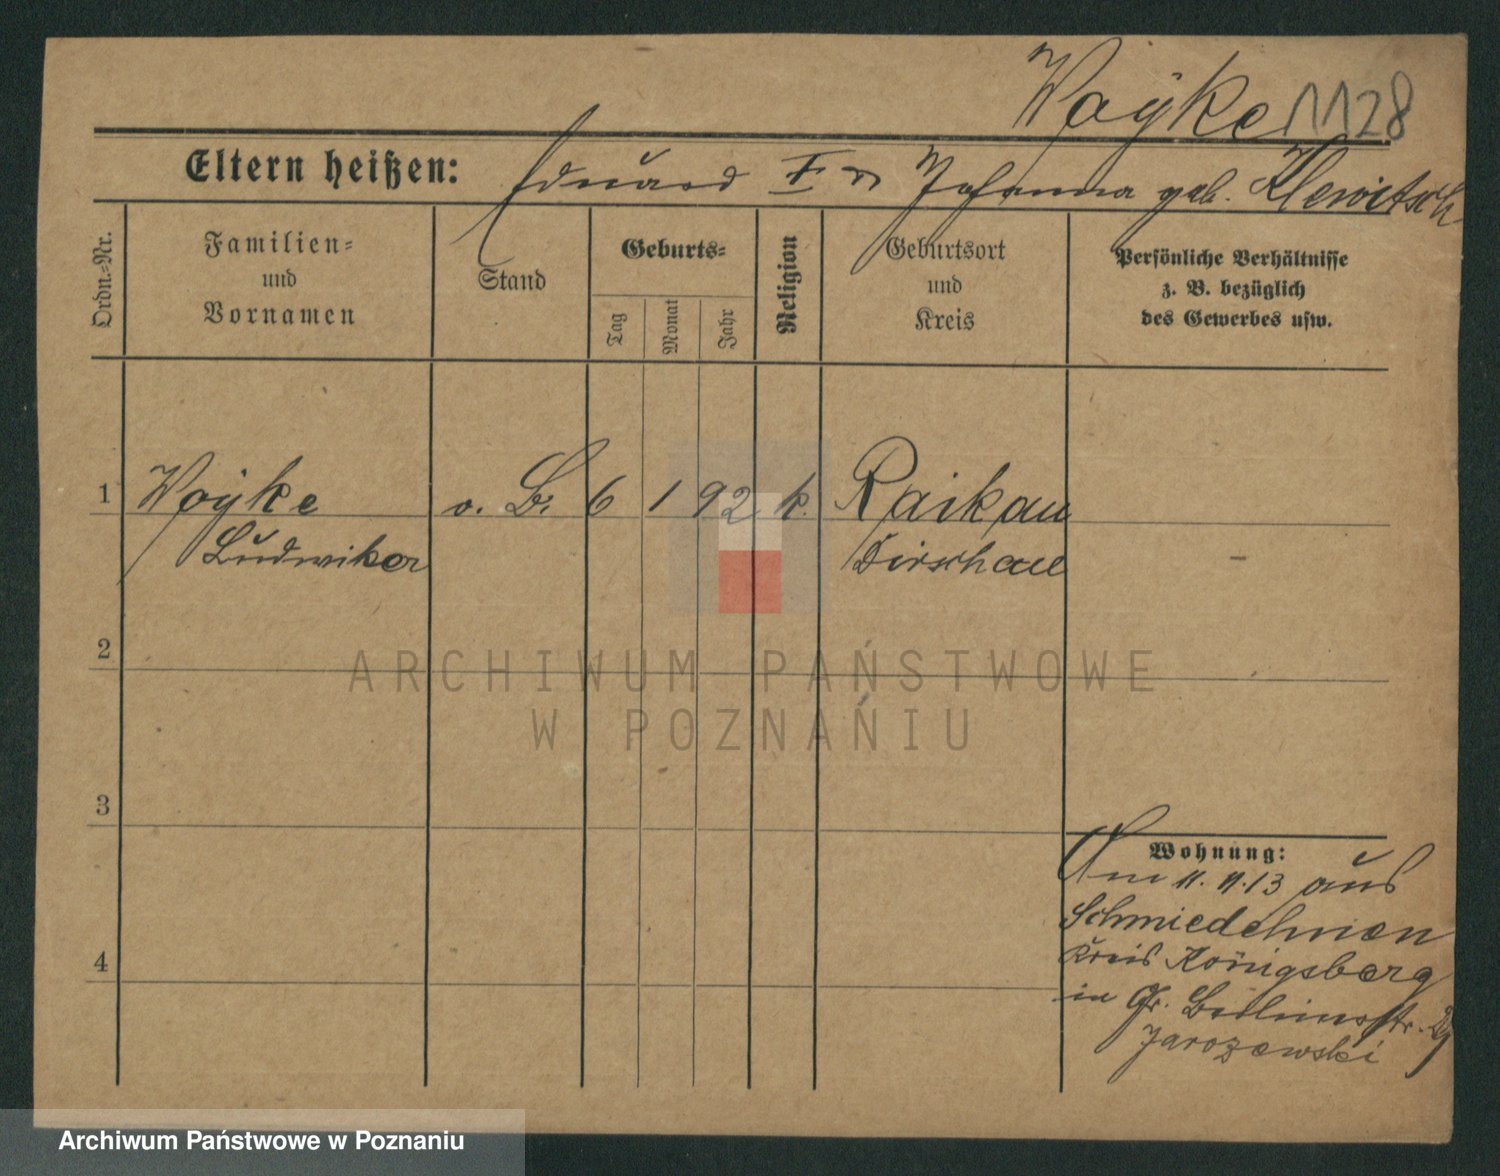 Woÿke 1128
Eltern heißen: Eduard F u Johanna geb. Klewitsch
Ordn.=Nr.
Familien=
und
Vornamen
Stand
Geburts=
Tag
Monat
Jahr
Religion
Geburtsort
und
Kreis
Persönliche Verhältnisse
z. B. bezüglich
des Gewerbes usw.
1 Woÿke o. B. 6 1 92 k. Raikau
Ludwika Dirschau –
2
3
4
Wohnung:
Am 11. 11. 13 aus
Schmiedehnen
Kreis Königsberg
in Gr. Berlinerstr.
Jarozewski
ARCHIWUM PAŃSTWOWE
W POZNANIU
Archiwum Państwowe w Poznaniu